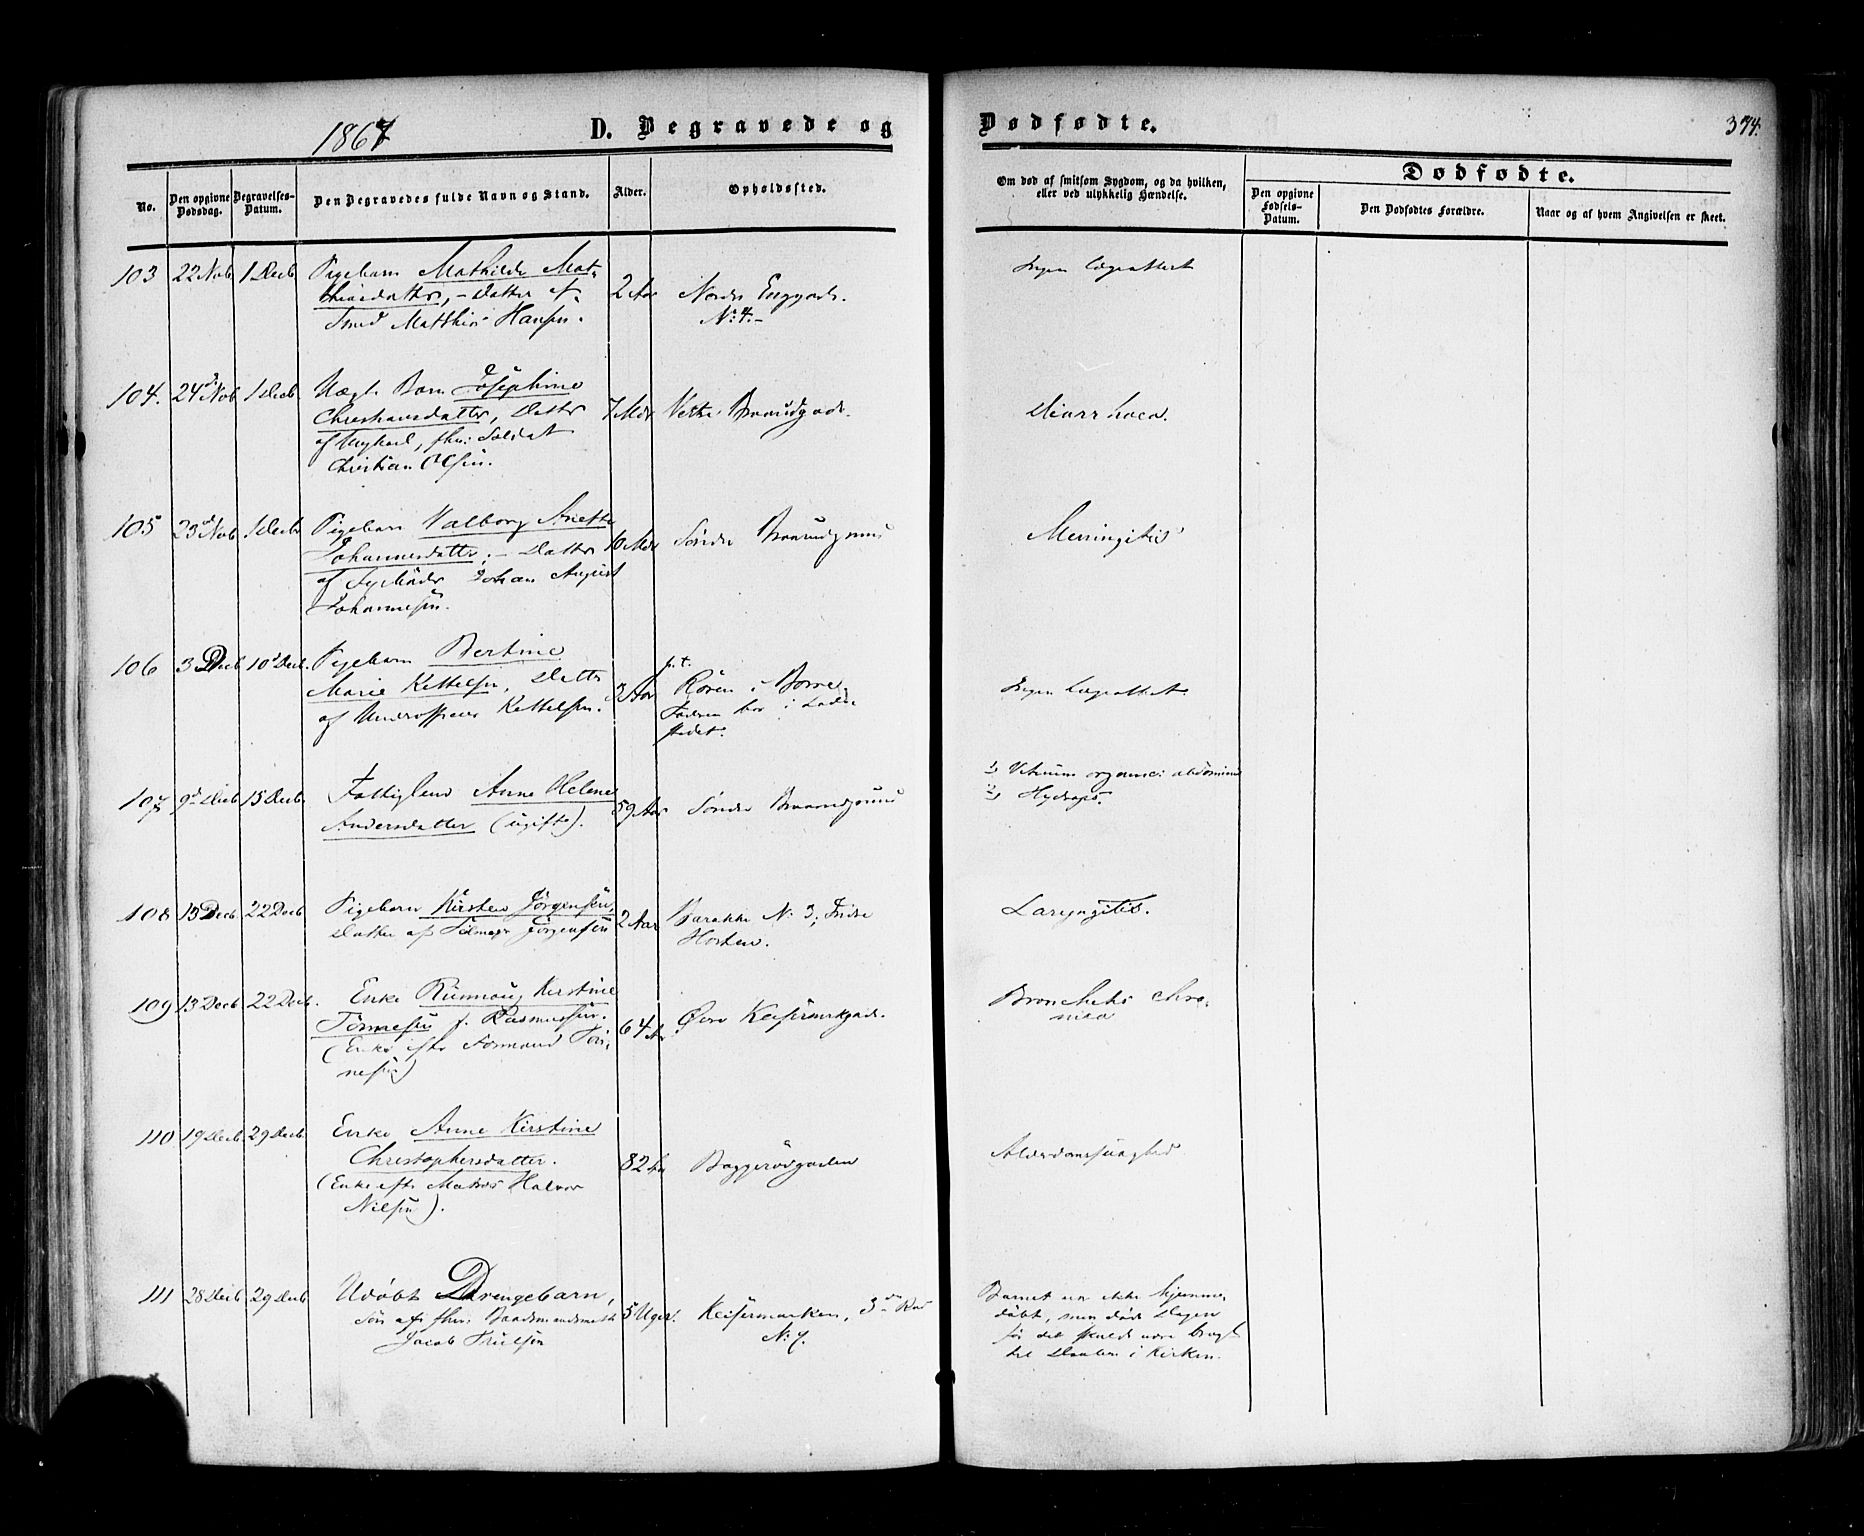 1867 D. Begravede og Dødfødte. 374.
No. Den opgivne Dødsdag. Begravelses-Datum. Den Begravedes fulde Navn og Stand. Alder. Opholdssted. Om død af smitsom Sygdom, og da hvilken, eller ved ulykkelig Hændelse. Dødfødte.
Den opgivne Fødsels-Datum. Den Dødfødtes Forældre. Naar og af hvem Angivelsen er skeet.
103 22 Nob 1 Decb Pigebarn Mathilde Mat- 2 Aar Nordre Enggade. Ingen Lægeattest
thisdatter, - Datter af
Smed Matthis Hansen. No 4.-
104. 24 Nob 1 Decb Uægt. Barn Josephine 7 Mdr Vestre Braarudgade. Diarrhoea.
Christiansdatter, Datter
af Ungkarl, fhv: Soldat
Christian Olsen.
105 23 Nob 1 Decb Pigebarn Valborg Anette 10 Mdr Søndre Braarudgrund Meningitis
Johannesdatter, - Datter
af Johan August
Johannesen.
106 3 Decb 10 Decb. Pigebarn Bertine 3 Aar p.t. Røren i Borre, Ingen Lægeattest.
Marie Kettelsen, Datter Faderen bor i Lade-
af Underofficer Kettelsen. stedet.
107 9 Decb 15 Decb. Fattiglem Anne Helene 59 Aar Søndre Braarudgrund 1) Vitium organic: abdominis
Andersdatter (ugift). 2) Hydrops.
108 13 Decb 22 Decb Pigebarn Kirsten Jørgensen, 2 Aar Barakke No 3, Indre Laryngitis.
Datter af Jørgensen Horten.
109 13 Decb 22 Decb. Enke Kirstine 64 Aar Øvre Keisemarkgade. Bronchitis chro-
Tønnesen f. Rasmussen. nica
(Enke efter Formand Tøn-
nesen)
110 19 Decb 29 Decb. Enke Anne Kirstine 82 Aar Baggerødgaden Alderdomssvaghed
Christophersdatter.
(Enke efter Matros Halvor
Nilsen).
111 28 Decb 29 Decb Udøbt Drengebarn, 5 Uger. Keisermarken, 3die Rad Barnet var ikke hjemme-
Søn af fhv: Baadsmandsmath No 7. døbt, men døde Dagen
Jacob Trulsen før det skulde være bragt
til Daaben i Kirken.